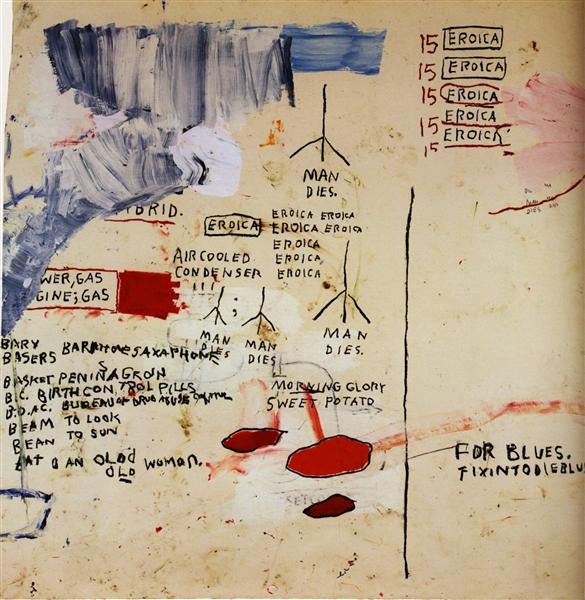 15 EROICA
15 EROICA
15 EROICA
15 EROICA
15 EROICA
MAN
DIES.
MAN
DIES
YBRID.
EROICA EROICA EROICA
EROICA EROICA
EROICA
EROICA
EROICA
AIRCOOLED
CONDENSER
WER, GAS
GINE; GAS
;
MAN
DIES
MAN
DIES
MAN
DIES.
BARY
BASERS BARITONE SAXAPHONE
BASKET PENIN A GROIN
B.C. BIRTH CONTROL PILLS
B.D.A.C. BUREAU OF DRUG ABUSE CONTROL
BEAM TO LOOK
BEAN TO SUN
BAT AN OLD
OLD WOMAN.
MORNING GLORY
SWEET POTATO
FOR BLUES.
FIXINTODIEBLU